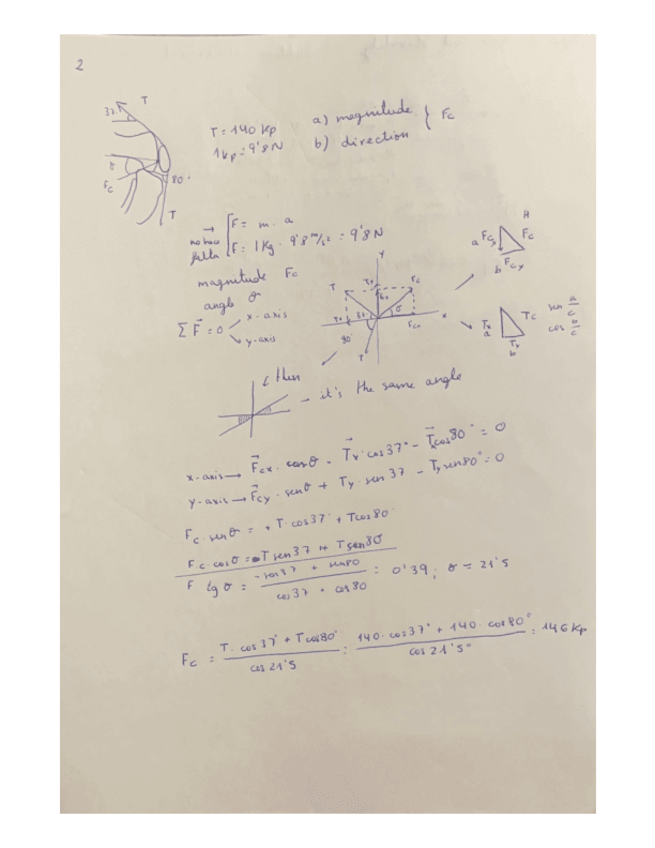 2
T
37
T = 140 Kp
1Kp = 9'8 N
a) magnitude
b) direction
} Fc
θ
Fc
80°
T
no hace falta
F = m · a
F = 1 Kg · 9'8 m/s² = 9'8 N
magnitude Fc
angle θ
Σ F = 0
x-axis
y-axis
y
T
Fc
θ
x
80°
T
H
a Fc
Fc
b Fcy
Tx
a
Tc
b
sen a/c
cos
then
it's the same angle
x-axis → Fcx · cosθ - Tx · cos37° - Txcos80° = 0
y-axis → Fcy · senθ + Ty · sen 37 - Tysen80° = 0
Fc · senθ = + T · cos37° + Tcos80°
Fc · cosθ = - T sen37 + T sen80
F tg θ = -sen37 + sen80 / cos37 + cos80 = 0'39 ; θ = 21'5
Fc = T · cos37° + Tcos80° / cos 21'5 = 140 · cos37° + 140 · cos80° / cos 21'5° = 146 Kp